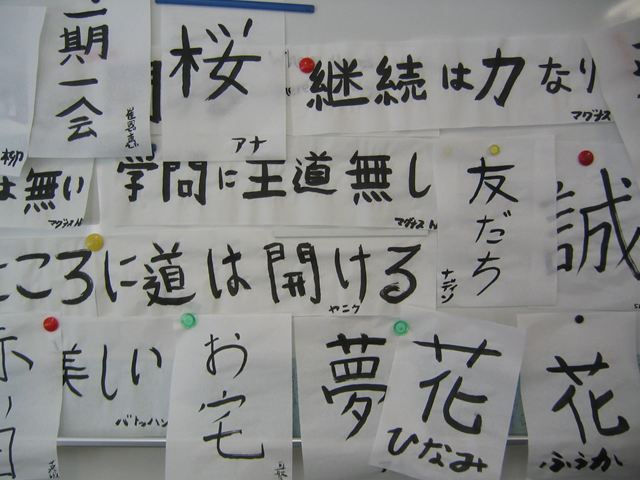 一期一会
桜
アナ
継続は力なり
マグナス
柳
は無い
マグナス N
学問に王道無し
マグナス N
友だち
ナディン
誠
ころに道は開ける
ヤニク
美しい
お宅
夢
花
ひなみ
花
ふうか